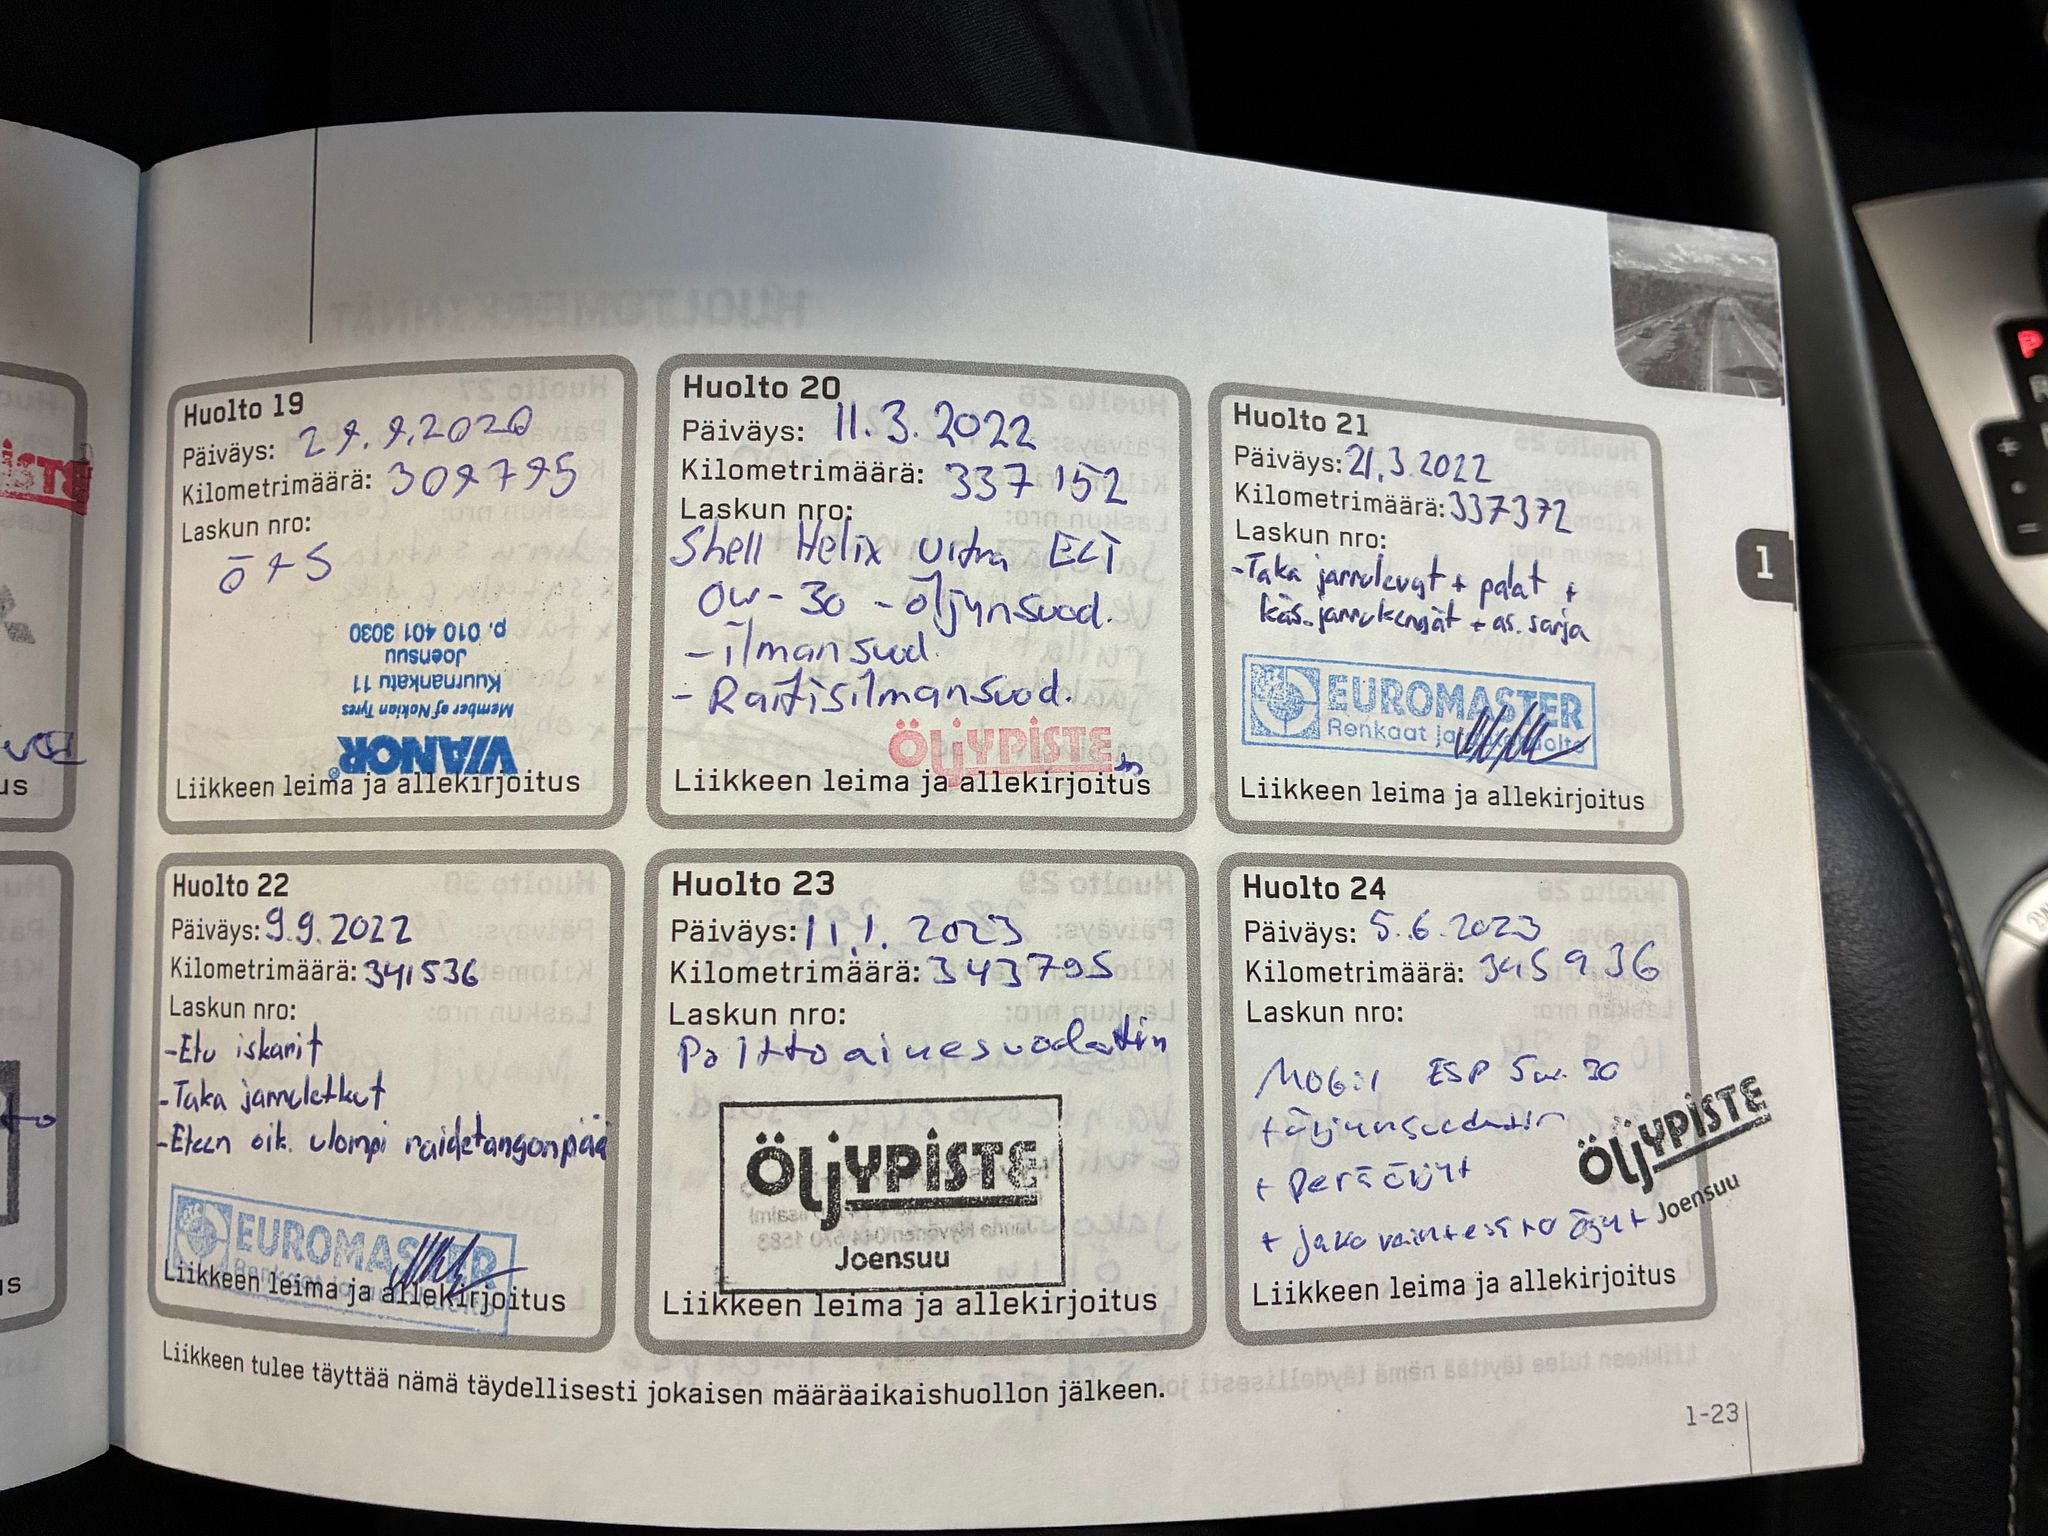 Huolto 19
Päiväys: 29.9.2020
Kilometrimäärä: 309795
Laskun nro:
Ö + S
p. 010 401 3030
Joensuu
Kuurnankatu 11
Member of Nokian Tyres
VIANOR
Liikkeen leima ja allekirjoitus
Huolto 20
Päiväys: 11.3.2022
Kilometrimäärä: 337 152
Laskun nro:
Shell Helix Ultra ECT
0w-30 - öljynsuod.
- ilmansuod.
- Raitisilmansuod.
ÖLJYPISTE
Liikkeen leima ja allekirjoitus
Huolto 21
Päiväys: 21.3.2022
Kilometrimäärä: 337372
Laskun nro:
-Taka jarrulevyt + palat +
käs.jarrukengät + as. sarja
EUROMASTER
Renkaat ja
Liikkeen leima ja allekirjoitus
Huolto 22
Päiväys: 9.9.2022
Kilometrimäärä: 341536
Laskun nro:
-Etu iskarit
-Taka jarruletkut
-Eteen oik. ulompi raidetangonpää
EUROMASTER
Liikkeen leima ja allekirjoitus
Huolto 23
Päiväys: 11.1. 2023
Kilometrimäärä: 343795
Laskun nro:
Polttoainesuodatin
ÖLJYPISTE
Joensuu
Liikkeen leima ja allekirjoitus
Huolto 24
Päiväys: 5.6.2023
Kilometrimäärä: 345936
Laskun nro:
Mobil ESP 5w.30
+ öljynsuodatin
+ perä öljyt
+ jakovaihteisto öljyt
ÖLJYPISTE
Joensuu
Liikkeen leima ja allekirjoitus
Liikkeen tulee täyttää nämä täydellisesti jokaisen määräaikaishuollon jälkeen.
1-23
1
P